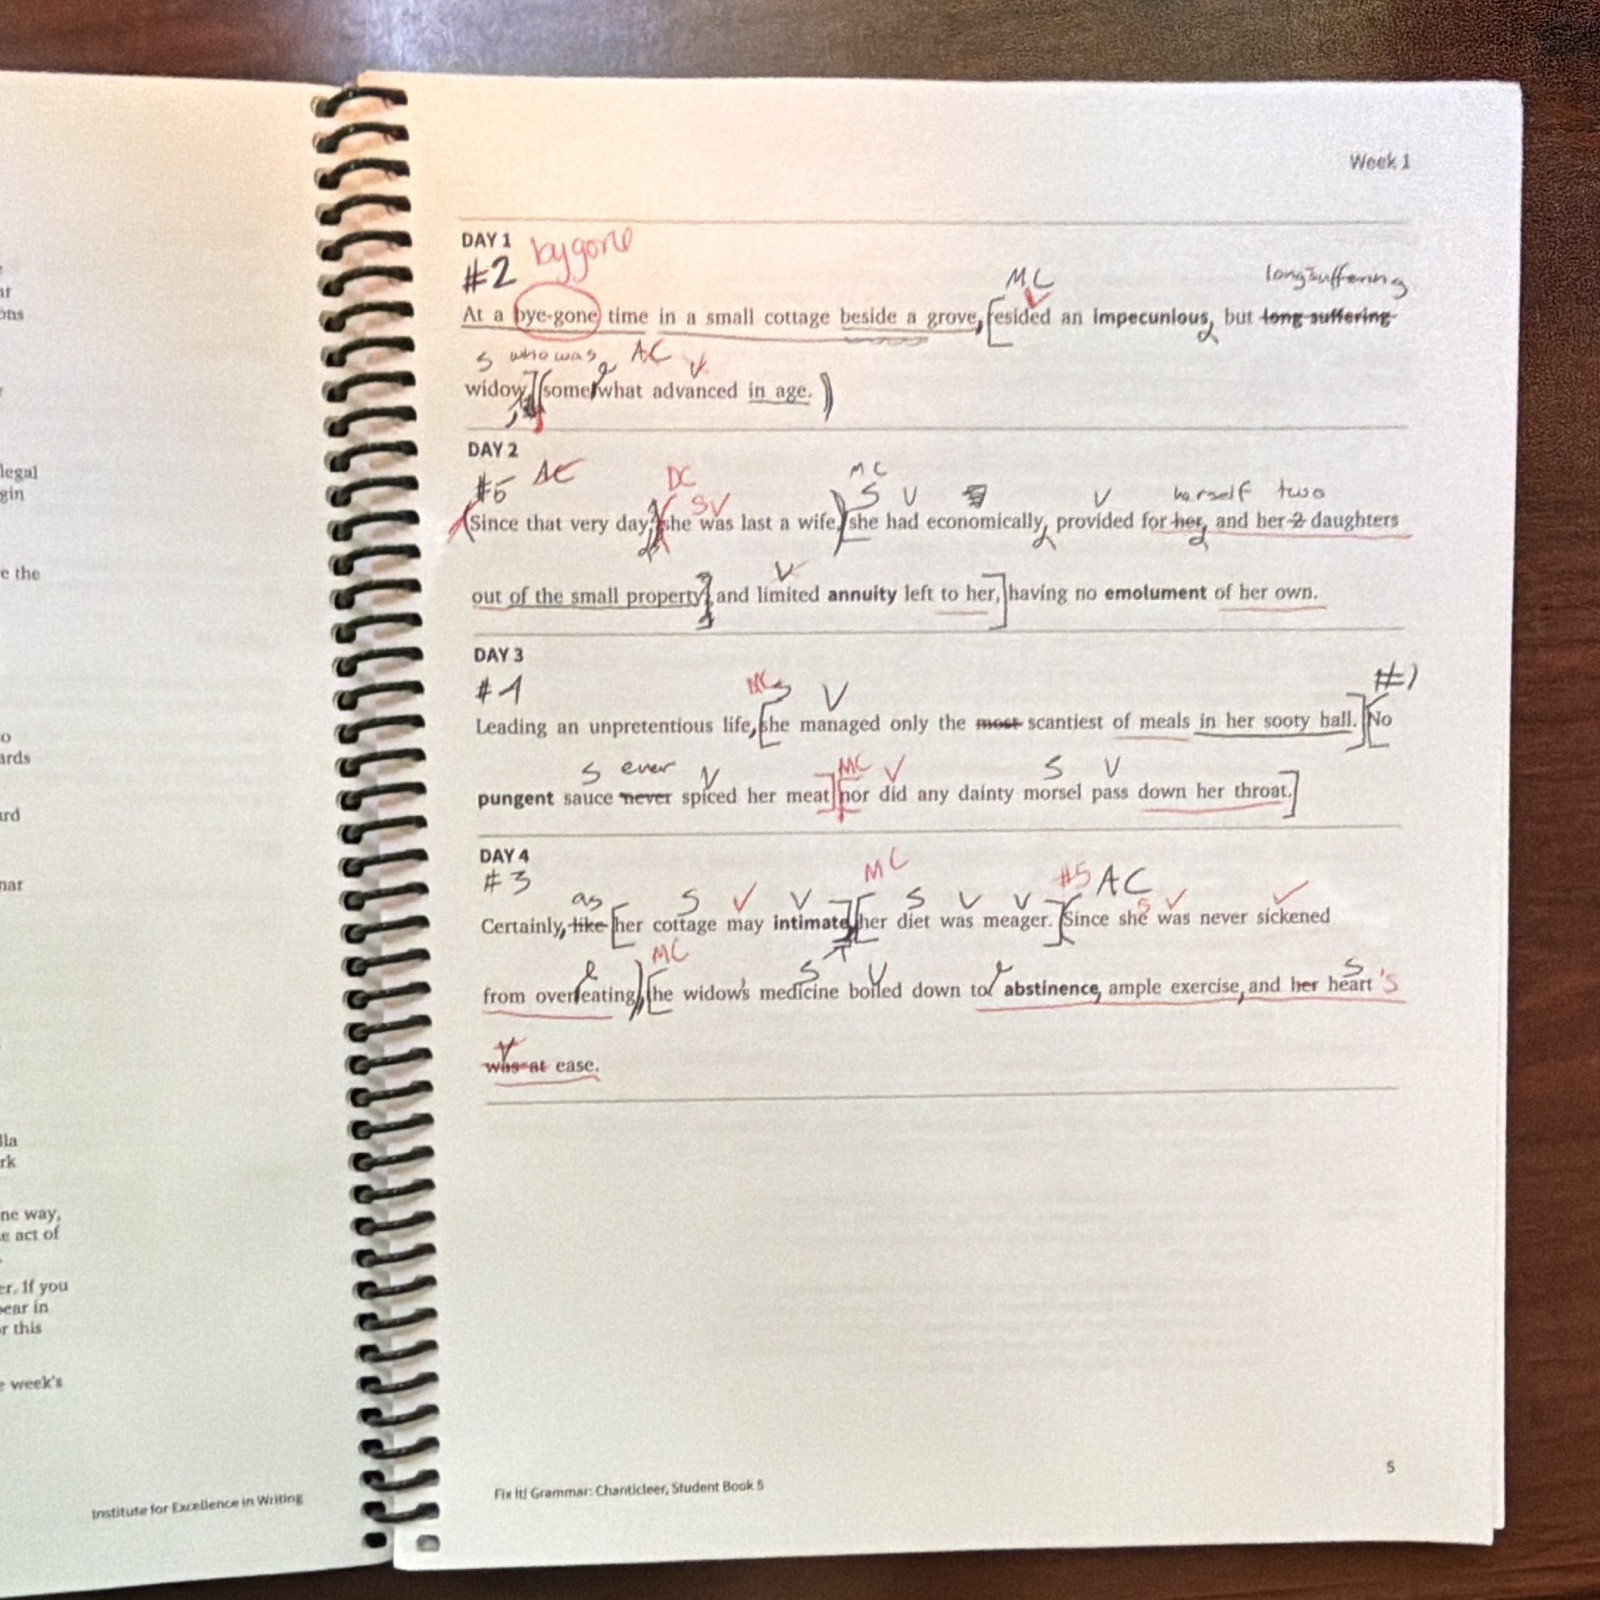 Week 1
DAY 1 bygone
#2 MC long-suffering
At a bye-gone time in a small cottage beside a grove, resided an impecunious, but long suffering
S who was AC V
widow, some what advanced in age.
DAY 2
#6 AC DC MC
S V S V V herself two
Since that very day, she was last a wife, she had economically, provided for her, and her 2 daughters
V
out of the small property, and limited annuity left to her, having no emolument of her own.
DAY 3
#1 MC S V #1
Leading an unpretentious life, she managed only the most scantiest of meals in her sooty hall. No
S ever V MC V S V
pungent sauce never spiced her meat nor did any dainty morsel pass down her throat.
DAY 4
#3 MC #5 AC
as S V V S V V S V
Certainly, like her cottage may intimate, her diet was meager. Since she was never sickened
MC S V S
from over eating, the widow's medicine boiled down to abstinence, ample exercise, and her heart 's
V
was at ease.
5
Fix It! Grammar: Chanticleer, Student Book 5
ons
legal
gin
e the
o
ards
ard
mar
lla
rk
ne way,
e act of
er. If you
pear in
r this
e week's
Institute for Excellence in Writing